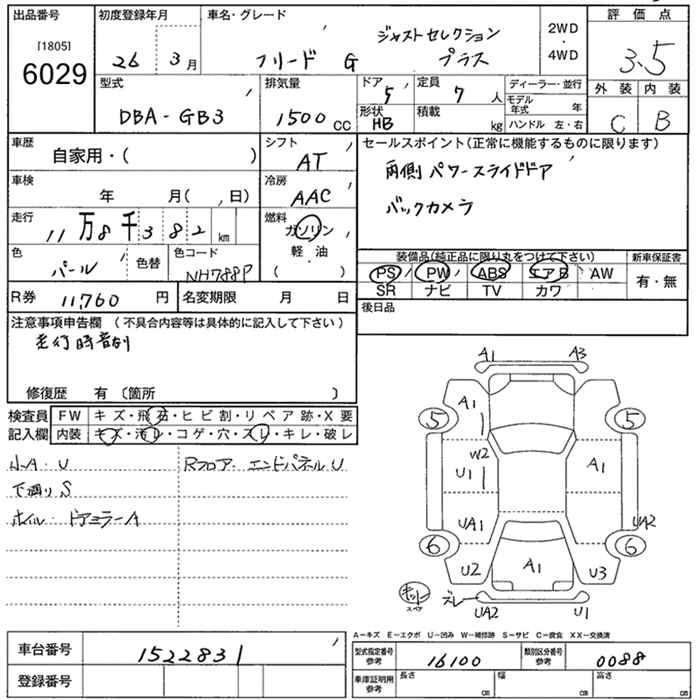 出品番号
[1805]
6029
初度登録年月
26 3月
車名・グレード
フリード G ジャストセレクション
プラス
2WD
・
4WD
評価点
3.5
外装 内装
C B
型式
DBA-GB3
排気量
1500 CC
ドア
5
定員
7 人
形状
HB
積載
kg
ディーラー・並行
モデル年式 年
ハンドル 左・右
車歴
自家用・( )
シフト
AT
セールスポイント(正常に機能するものに限ります)
両側パワースライドドア
バックカメラ
車検
年 月( , 日)
冷房
AAC
走行
11万8千382 km
燃料
ガソリン
軽・油
( )
色
パール
色替
色コード
NH788P
装備品(純正品に限り丸をつけて下さい)
新車保証書
PS PW ABS エアB AW
SR ナビ TV カワ
有・無
R券 11,760 円
名変期限 月 日
後日品
注意事項申告欄 (不具合内容等は具体的に記入して下さい)
走行時音有
修復歴 有 (箇所 )
検査員
記入欄
FW キズ・飛石・ヒビ割・リペア跡・X要
内装 キズ・汚レ・コゲ・穴・スレ・キレ・破レ
小A・U
下廻りS
ホイル・ドアミラーA
Rフロア・エンドパネルU
A1 A3
A1
5 5
W2
U1 A1
UA1 UA2
6 6
U2 A1 U3
キット
スペア
ズレ
UA2 U1
A-キズ E-エクボ U-凹み W-補修跡 S-サビ C-腐食 XX-交換済
車台番号
1522831
登録番号
型式指定番号
参考
16100
類別区分番号
参考
0088
車庫証明用
参考
長さ cm
幅 cm
高さ cm